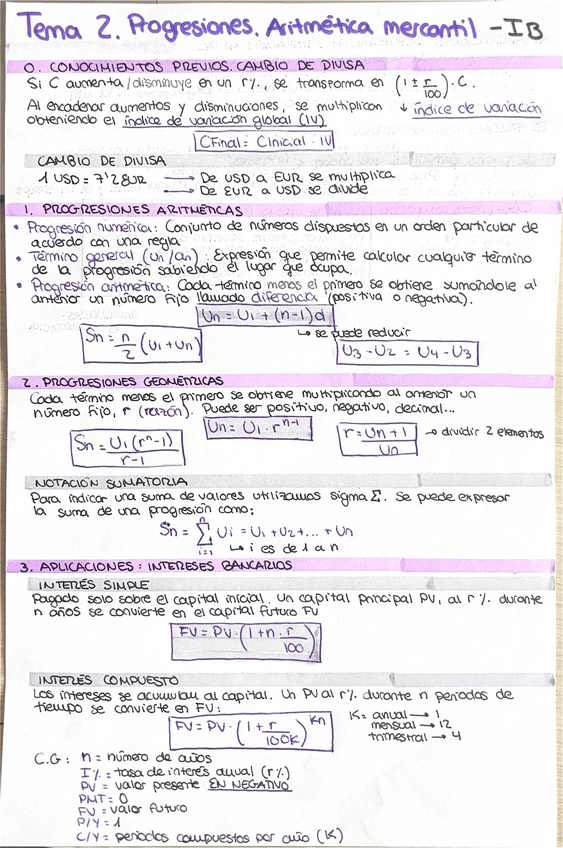 Tema 2. Progresiones. Aritmética mercantil - IB
0. CONOCIMIENTOS PREVIOS. CAMBIO DE DIVISA
Si C aumenta/disminuye en un r%, se transforma en (1 ± r/100) · C.
Al encadenar aumentos y disminuciones, se multiplican ↓ índice de variación
obteniendo el índice de variación global (IV)
CFinal = Cinicial · IV
CAMBIO DE DIVISA
1 USD = 7'28UR → De USD a EUR se multiplica
→ De EUR a USD se divide
1. PROGRESIONES ARITMÉTICAS
• Progresión numérica: Conjunto de números dispuestos en un orden particular de
acuerdo con una regla.
• Término general (Un/an): Expresión que permite calcular cualquier término
de la progresión sabiendo el lugar que ocupa.
• Progresión aritmética: Cada término menos el primero se obtiene sumándole al
anterior un número fijo llamado diferencia (positiva o negativa).
Un = U1 + (n-1)d
↳ se puede reducir
Sn = n/2 (U1 + Un)
U3 - U2 = U4 - U3
2. PROGRESIONES GEOMÉTRICAS
Cada término menos el primero se obtiene multiplicando al anterior un
número fijo, r (razón). Puede ser positivo, negativo, decimal...
Un = U1 · r^n-1
Sn = U1(r^n-1)/r-1
r = Un+1/Un → dividir 2 elementos
NOTACIÓN SUMATORIA
Para indicar una suma de valores utilizamos sigma Σ. Se puede expresar
la suma de una progresión como:
Sn = Σ(i=1, n) Ui = U1 + U2 + ... + Un
↳ i es de 1 a n
3. APLICACIONES: INTERESES BANCARIOS
INTERÉS SIMPLE
Pagado solo sobre el capital inicial. Un capital principal PV, al r% durante
n años se convierte en el capital futuro FV
FV = PV · (1 + n · r/100)
INTERÉS COMPUESTO
Los intereses se acumulan al capital. Un PV al r% durante n periodos de
tiempo se convierte en FV:
FV = PV · (1 + r/100K)^Kn
K = anual → 1
mensual → 12
trimestral → 4
C.G: n = número de años
I% = tasa de interés anual (r%)
PV = valor presente EN NEGATIVO
PMT = 0
FV = valor futuro
P/Y = 1
C/Y = periodos compuestos por año (K)